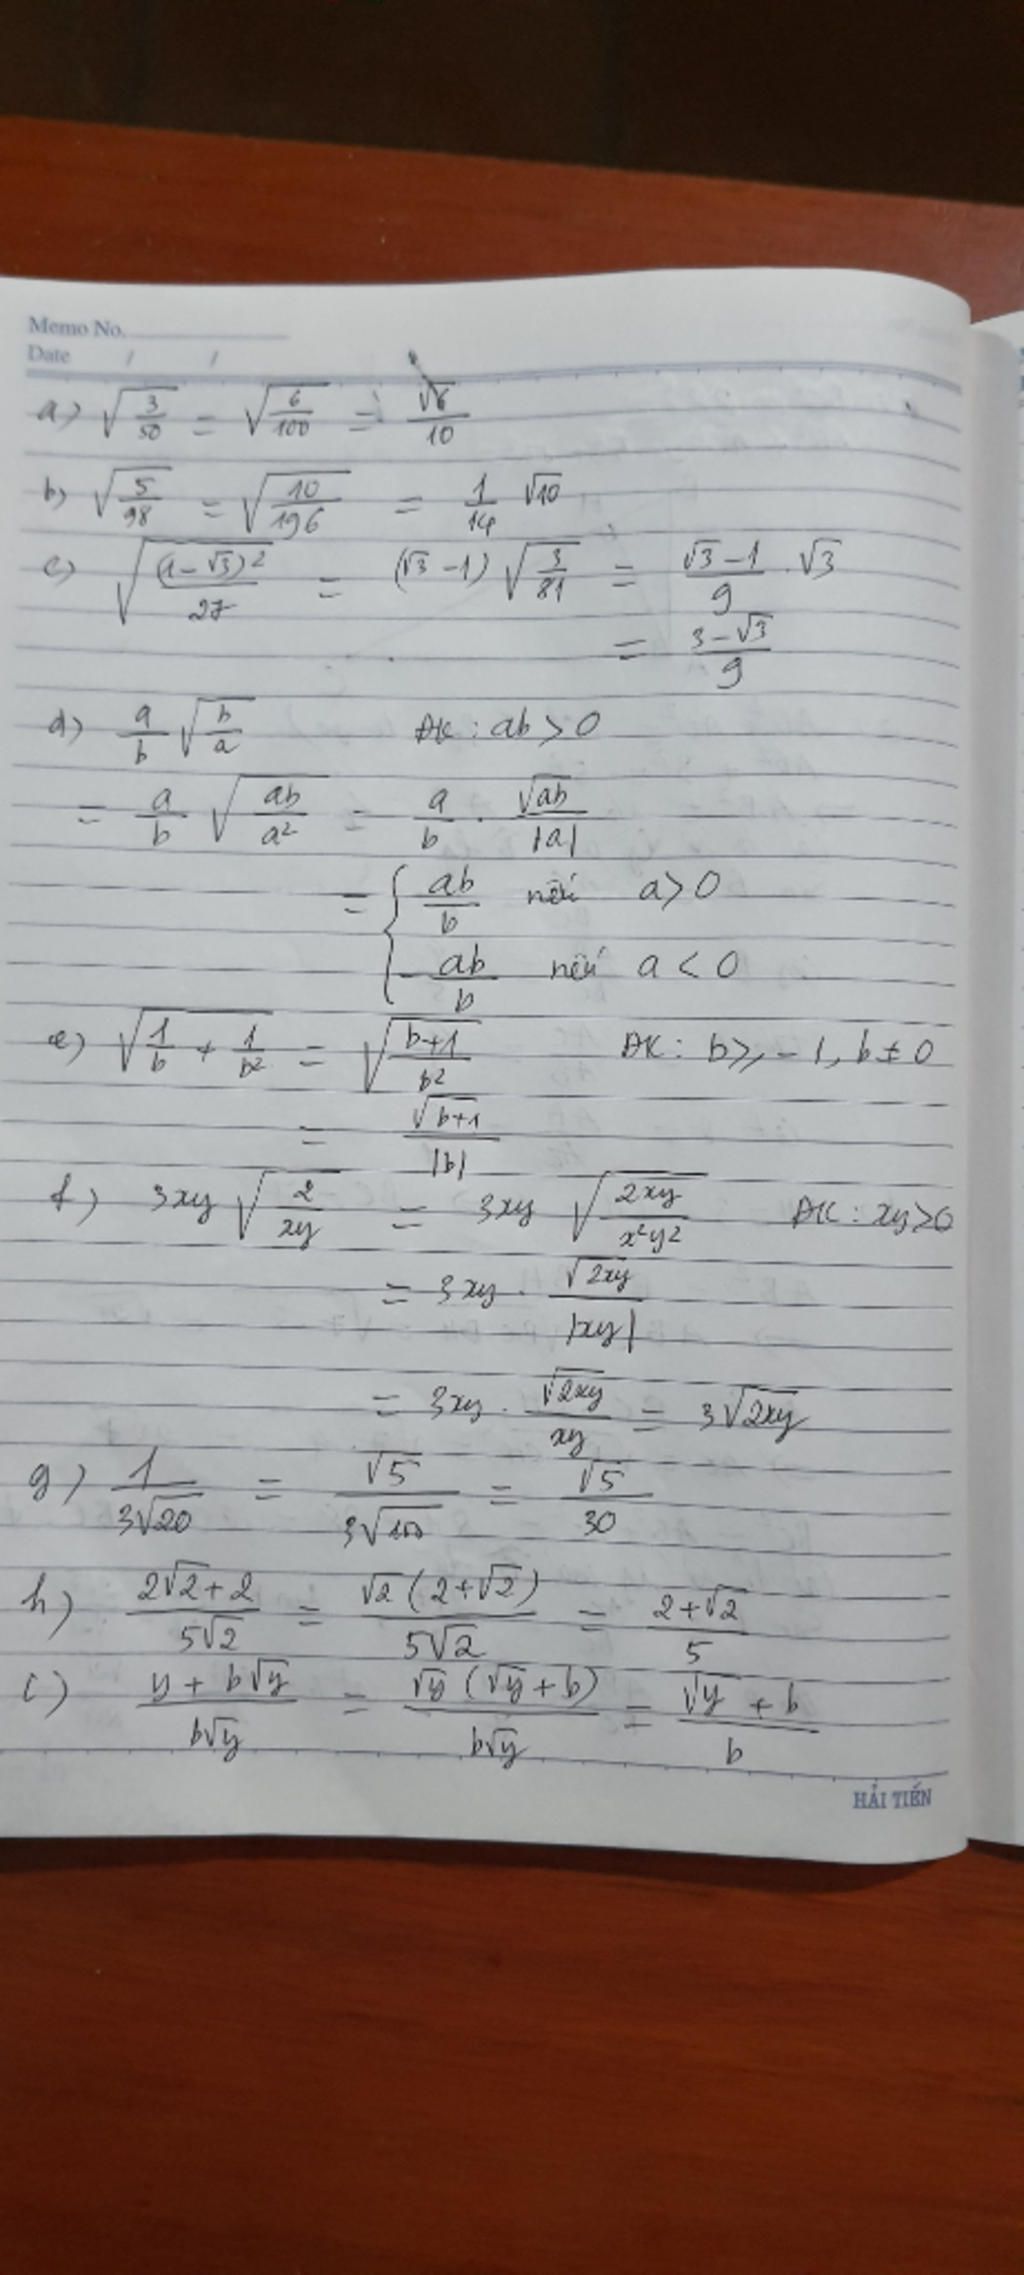 Memo No.
Date / /
a) √(3/50) = √(6/100) = √6/10
b) √(5/98) = √(10/196) = 1/14 √10
c) √((1-√3)²/27) = (√3-1) √(3/81) = (√3-1)/9 . √3
= (3-√3)/9
d) a/b √(b/a) ĐK : ab > 0
= a/b √(ab/a²) = a/b . √ab/|a|
= { ab/b nếu a > 0
-ab/b nếu a < 0
e) √(1/b + 1/b²) = √((b+1)/b²) ĐK : b ≥ -1, b ≠ 0
= √(b+1)/|b|
f) 3xy √(2/xy) = 3xy √(2xy/x²y²) ĐK : xy > 0
= 3xy . √(2xy)/|xy|
= 3xy . √(2xy)/xy = 3√(2xy)
g) 1/(3√20) = √5/(3√100) = √5/30
h) (2√2+2)/(5√2) = √2(2+√2)/(5√2) = (2+√2)/5
i) (y + b√y)/(b√y) = √y(√y+b)/(b√y) = (√y + b)/b
HẢI TIẾN